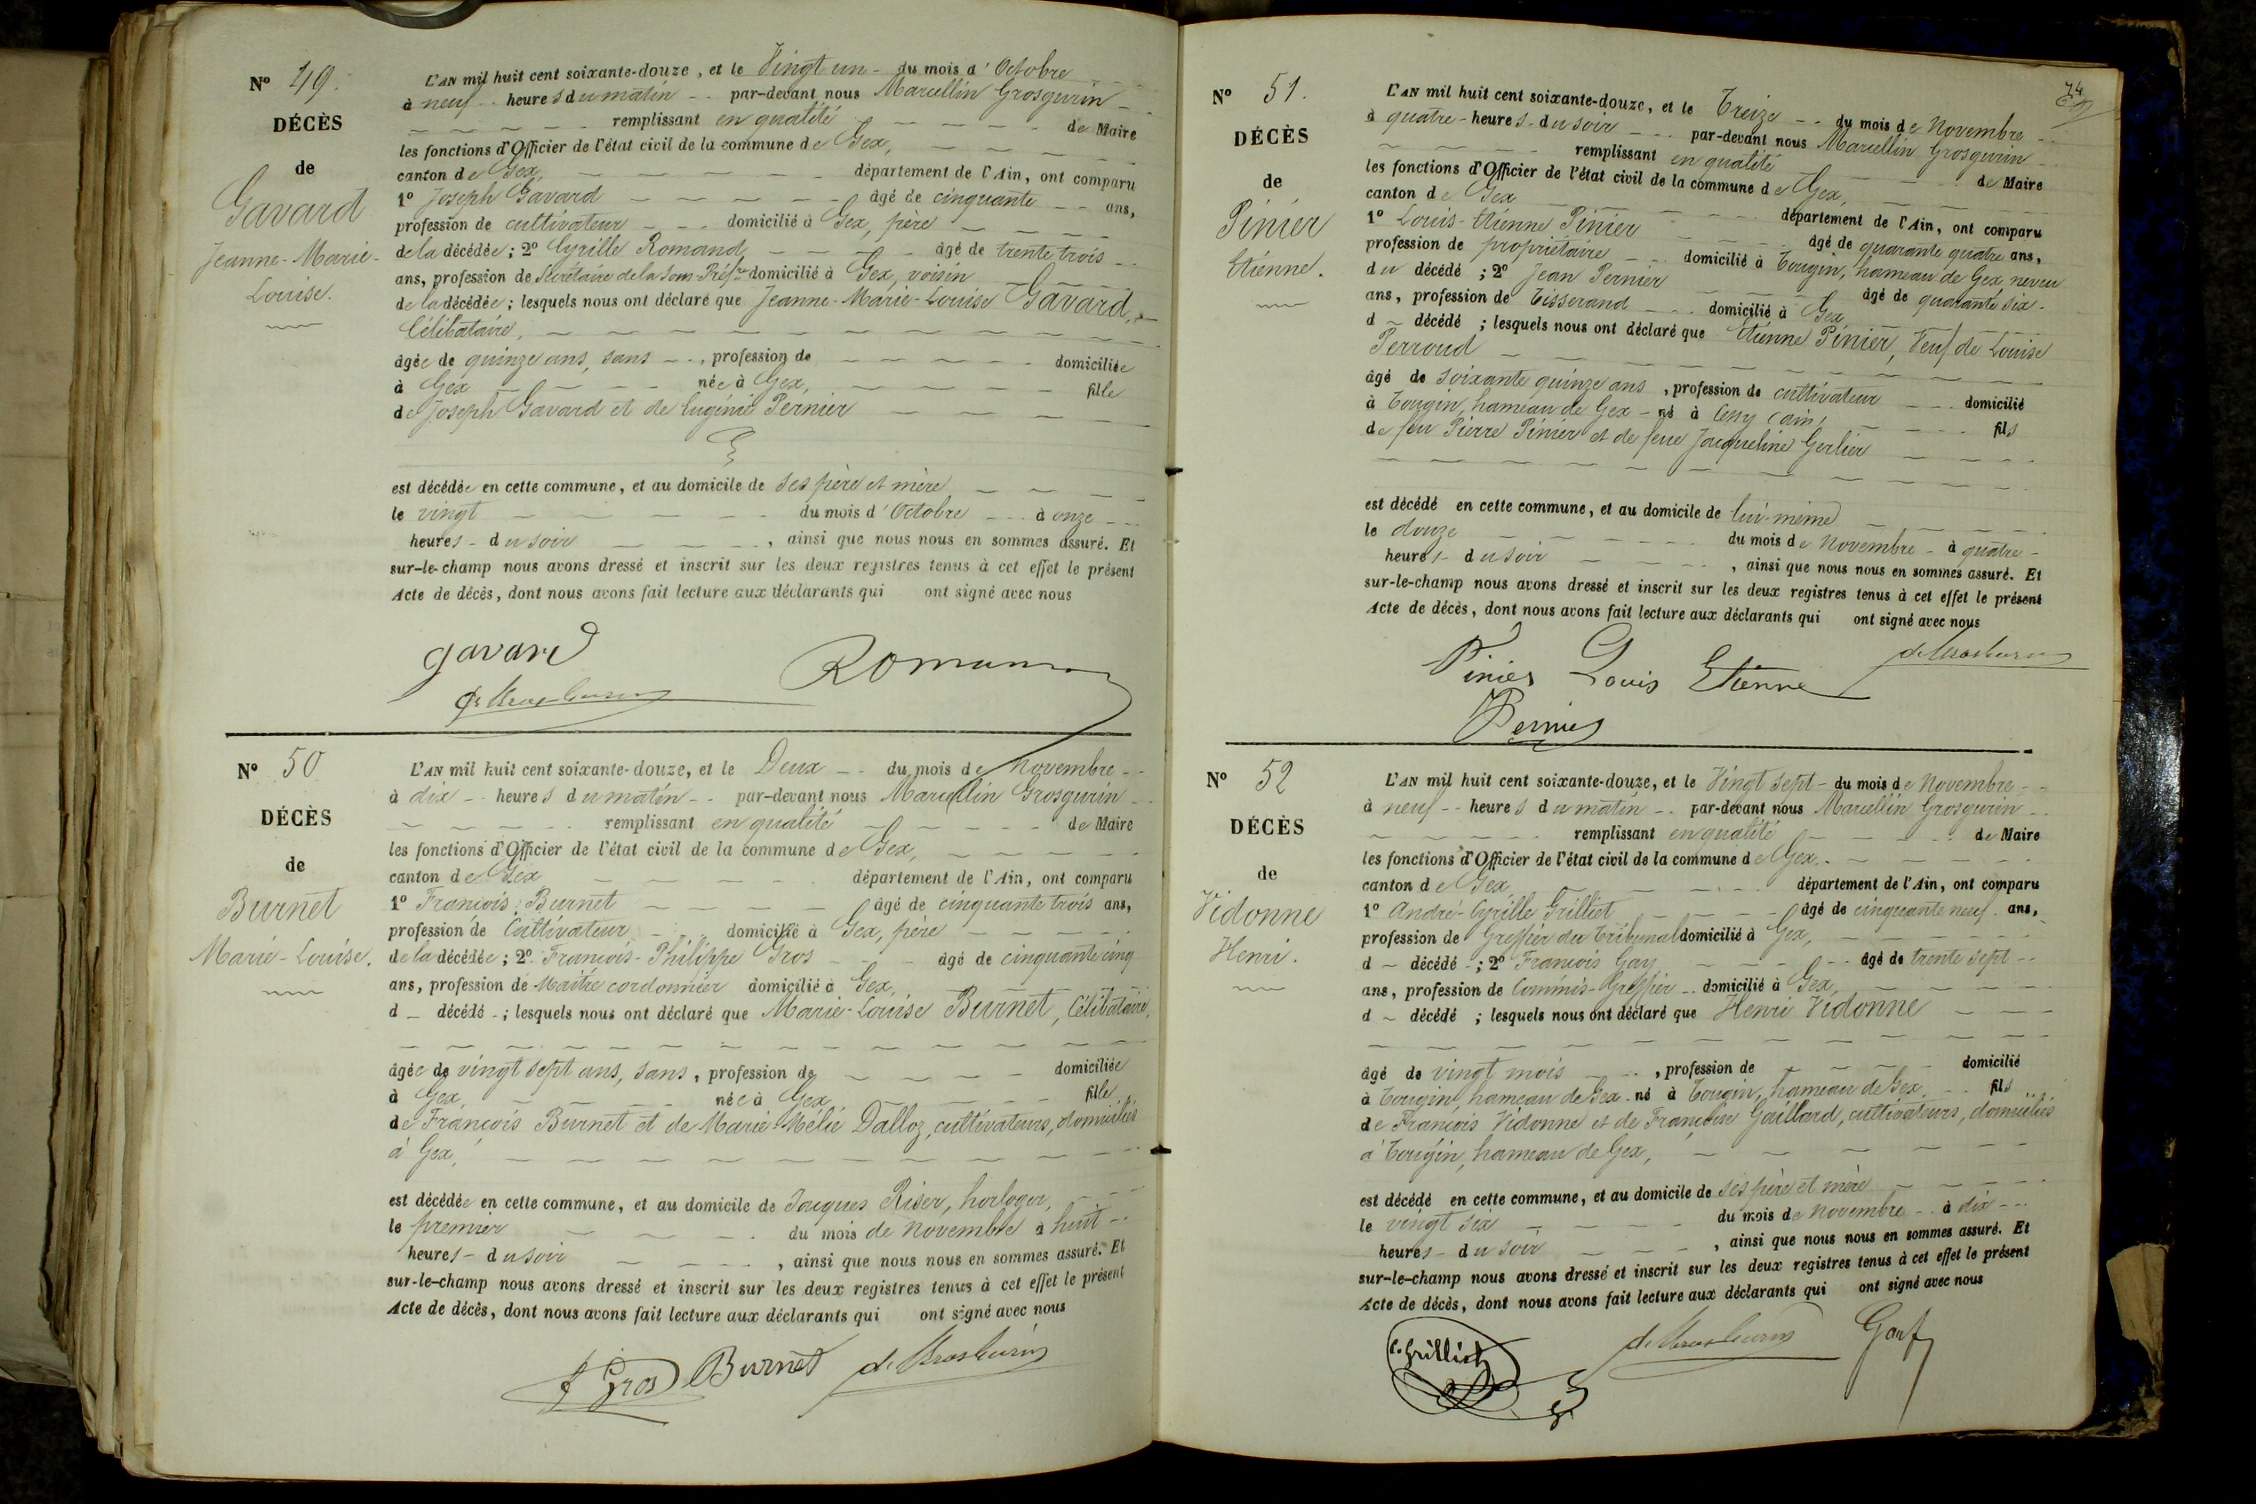 Nº 49.
DÉCÈS
de
Gavard
Jeanne-Marie-
Louise.
L'AN mil huit cent soixante-douze, et le Vingt un - du mois d'Octobre
à neuf -- heures du matin -- par-devant nous Marcellin Grosgurin -
remplissant en qualité de Maire
les fonctions d'Officier de l'état civil de la commune de Gex,
canton de Gex, département de l'Ain, ont comparu
1º Joseph Gavard âgé de cinquante -- ans,
profession de cultivateur domicilié à Gex, père
de la décédée; 2º Cyrille Romand, âgé de trente trois --
ans, profession de Secrétaire de la Sous-Préfre domicilié à Gex, voisin
de la décédée; lesquels nous ont déclaré que Jeanne-Marie-Louise Gavard,
Célibataire,
âgée de quinze ans, sans --, profession de domiciliée
à Gex née à Gex, fille
de Joseph Gavard et de Eugénie Pernier
est décédée en cette commune, et au domicile de ses père et mère
le vingt du mois d'Octobre -- à onze --
heures - du soir, ainsi que nous nous en sommes assuré. Et
sur-le-champ nous avons dressé et inscrit sur les deux registres tenus à cet effet le présent
Acte de décès, dont nous avons fait lecture aux déclarants qui ont signé avec nous
Gavard
Romand
Nº 50
DÉCÈS
de
Burnet
Marie-Louise.
L'AN mil huit cent soixante-douze, et le Deux -- du mois de Novembre --
à dix -- heures du matin -- par-devant nous Marcellin Grosgurin
remplissant en qualité de Maire
les fonctions d'Officier de l'état civil de la commune de Gex,
canton de Gex département de l'Ain, ont comparu
1º François Burnet âgé de cinquante trois ans,
profession de Cultivateur domicilié à Gex, père
de la décédée; 2º François-Philippe Gros âgé de cinquante cinq
ans, profession de Maître cordonnier domicilié à Gex,
d - décédé -; lesquels nous ont déclaré que Marie-Louise Burnet, Célibataire,
âgée de vingt sept ans, sans, profession de domiciliée
à Gex, née à Gex, fille
de François Burnet et de Marie-Mélie Dalloz, cultivateurs, domiciliés
à Gex,
est décédée en cette commune, et au domicile de Jacques Riser, horloger,
le premier du mois de novembre à huit --
heures - du soir, ainsi que nous nous en sommes assuré. Et
sur-le-champ nous avons dressé et inscrit sur les deux registres tenus à cet effet le présent
Acte de décès, dont nous avons fait lecture aux déclarants qui ont signé avec nous
f Gros Burnet
74
Nº 51.
DÉCÈS
de
Pinier
Etienne.
L'AN mil huit cent soixante-douze, et le Treize -- du mois de Novembre
à quatre - heures - du soir --- par-devant nous Marcellin Grosgurin
remplissant en qualité de Maire
les fonctions d'Officier de l'état civil de la commune de Gex,
canton de Gex département de l'Ain, ont comparu
1º Louis-Etienne Pinier âgé de quarante quatre ans,
profession de propriétaire -- domicilié à Tougin, hameau de Gex, neveu
du décédé; 2º Jean Pernier âgé de quarante six -
ans, profession de Tisserand domicilié à Gex
d ~ décédé; lesquels nous ont déclaré que Etienne Pinier, Veuf de Louise
Perroud
âgé de soixante quinze ans, profession de cultivateur domicilié
à Tougin, hameau de Gex - né à Cessy (ain) fils
de feu Pierre Pinier et de feue Jacqueline Gerlier
est décédé en cette commune, et au domicile de lui-même
le douze du mois de Novembre - à quatre -
heures - du soir, ainsi que nous nous en sommes assuré. Et
sur-le-champ nous avons dressé et inscrit sur les deux registres tenus à cet effet le présent
Acte de décès, dont nous avons fait lecture aux déclarants qui ont signé avec nous
Pinier Louis Etienne
Pernier
Nº 52
DÉCÈS
de
Vidonne
Henri.
L'AN mil huit cent soixante-douze, et le Vingt sept - du mois de Novembre --
à neuf -- heures du matin -- par-devant nous Marcellin Grosgurin
remplissant en qualité de Maire
les fonctions d'Officier de l'état civil de la commune de Gex.
canton de Gex département de l'Ain, ont comparu
1º André-Cyrille Grilliet âgé de cinquante neuf. ans,
profession de Greffier du Tribunal domicilié à Gex,
d ~ décédé -; 2º François Gay âgé de trente sept --
ans, profession de Commis-Greffier -- domicilié à Gex,
d ~ décédé; lesquels nous ont déclaré que Henri Vidonne
âgé de vingt mois, profession de domicilié
à Tougin, hameau de Gex - né à Tougin, hameau de Gex, fils
de François Vidonne et de Françoise Gaillard, cultivateurs, domiciliés
à Tougin, hameau de Gex,
est décédé en cette commune, et au domicile de ses père et mère
le vingt six du mois de Novembre -- à dix --
heures - du soir, ainsi que nous nous en sommes assuré. Et
sur-le-champ nous avons dressé et inscrit sur les deux registres tenus à cet effet le présent
Acte de décès, dont nous avons fait lecture aux déclarants qui ont signé avec nous
C. Grilliet
Gay